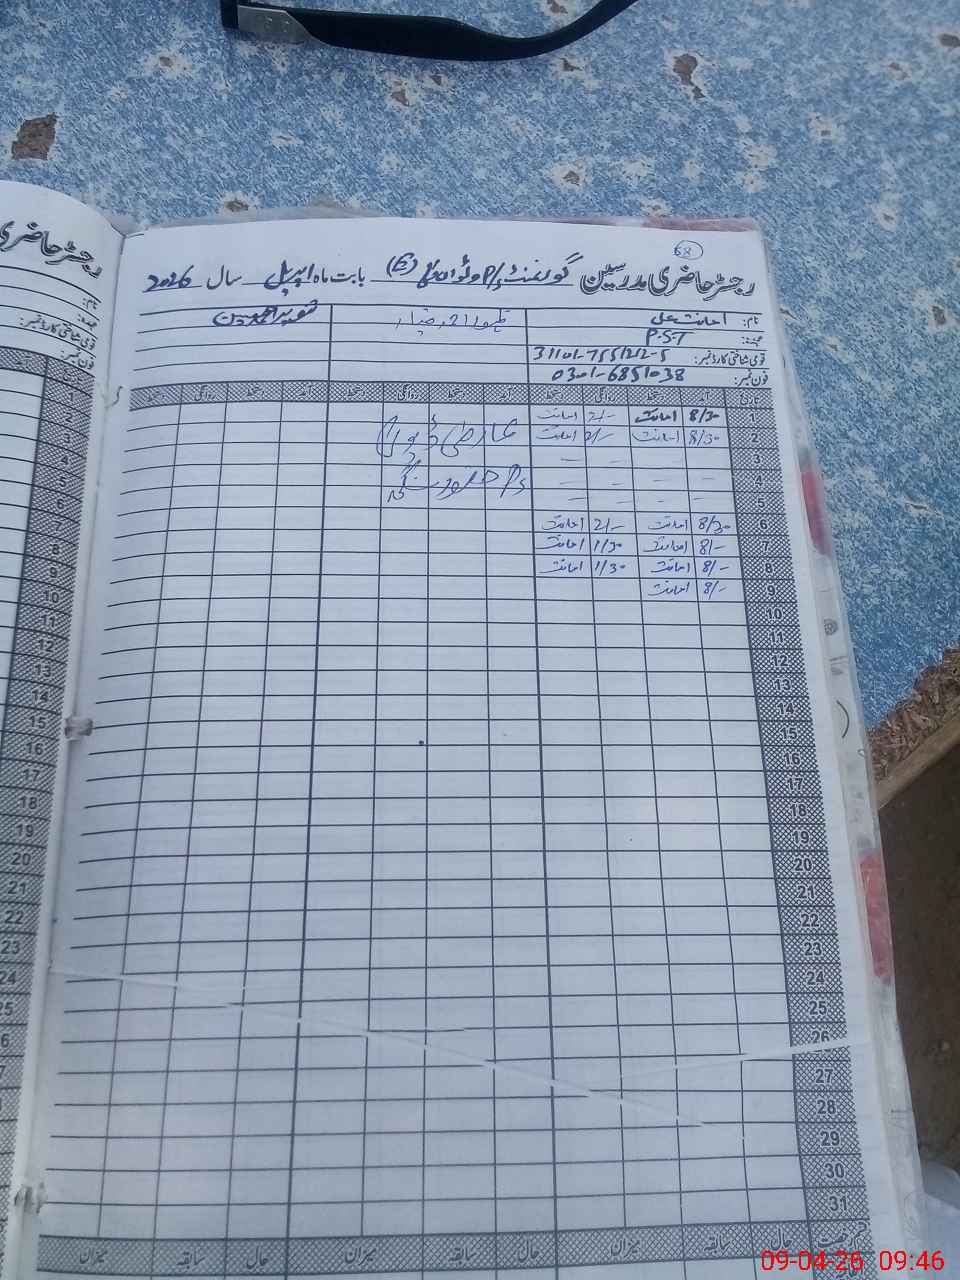 68
رجسٹر حاضری مدرسین گورنمنٹ P/S بابت ماہ اپریل سال 2026
نام: امانت علی
عہدہ: P.S.T
قومی شناختی کارڈ نمبر: 31101-7551212-5
فون نمبر: 0301-6851038
تاریخ آمد دستخط روانگی دستخط آمد دستخط روانگی دستخط آمد دستخط روانگی دستخط
1 8/30 امانت 2/- امانت
2 8/30 امانت 2/- امانت
عارضی ڈیوٹی
3 – – – –
4 – – – –
P/S
5 – – – –
6 8/30 امانت 2/- امانت
7 8/- امانت 1/30 امانت
8 8/- امانت 1/30 امانت
9 8/- امانت
10
11
12
13
14
15
16
17
18
19
20
21
22
23
24
25
26
27
28
29
30
31
رخصت حال سابقہ میزان حال سابقہ میزان حال سابقہ میزان
رجسٹر حاضری
نام:
عہدہ:
قومی شناختی کارڈ نمبر:
فون نمبر:
1
2
3
4
5
6
7
8
9
10
11
12
13
14
15
16
17
18
19
20
21
22
23
24
25
09-04-26 09:46